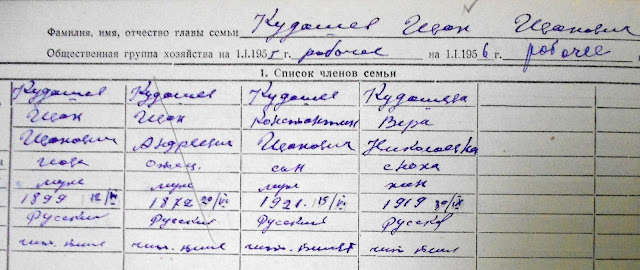 Фамилия, имя, отчество главы семьи Кудашев Иван Иванович
Общественная группа хозяйства на 1.I.1955 г. рабочее на 1.I.1956 г. рабочее
1. Список членов семьи
Кудашев Кудашев Кудашев Кудашева
Иван Иван Константин Вера
Иванович Андреевич Иванович Николаевна
глава отец. сын сноха
муж муж муж жен
1899 12/VI 1872 20/VI 1921. 15/VI 1919 30/IX
Русский Русский Русский Русск
чит. пиш чит. пиш